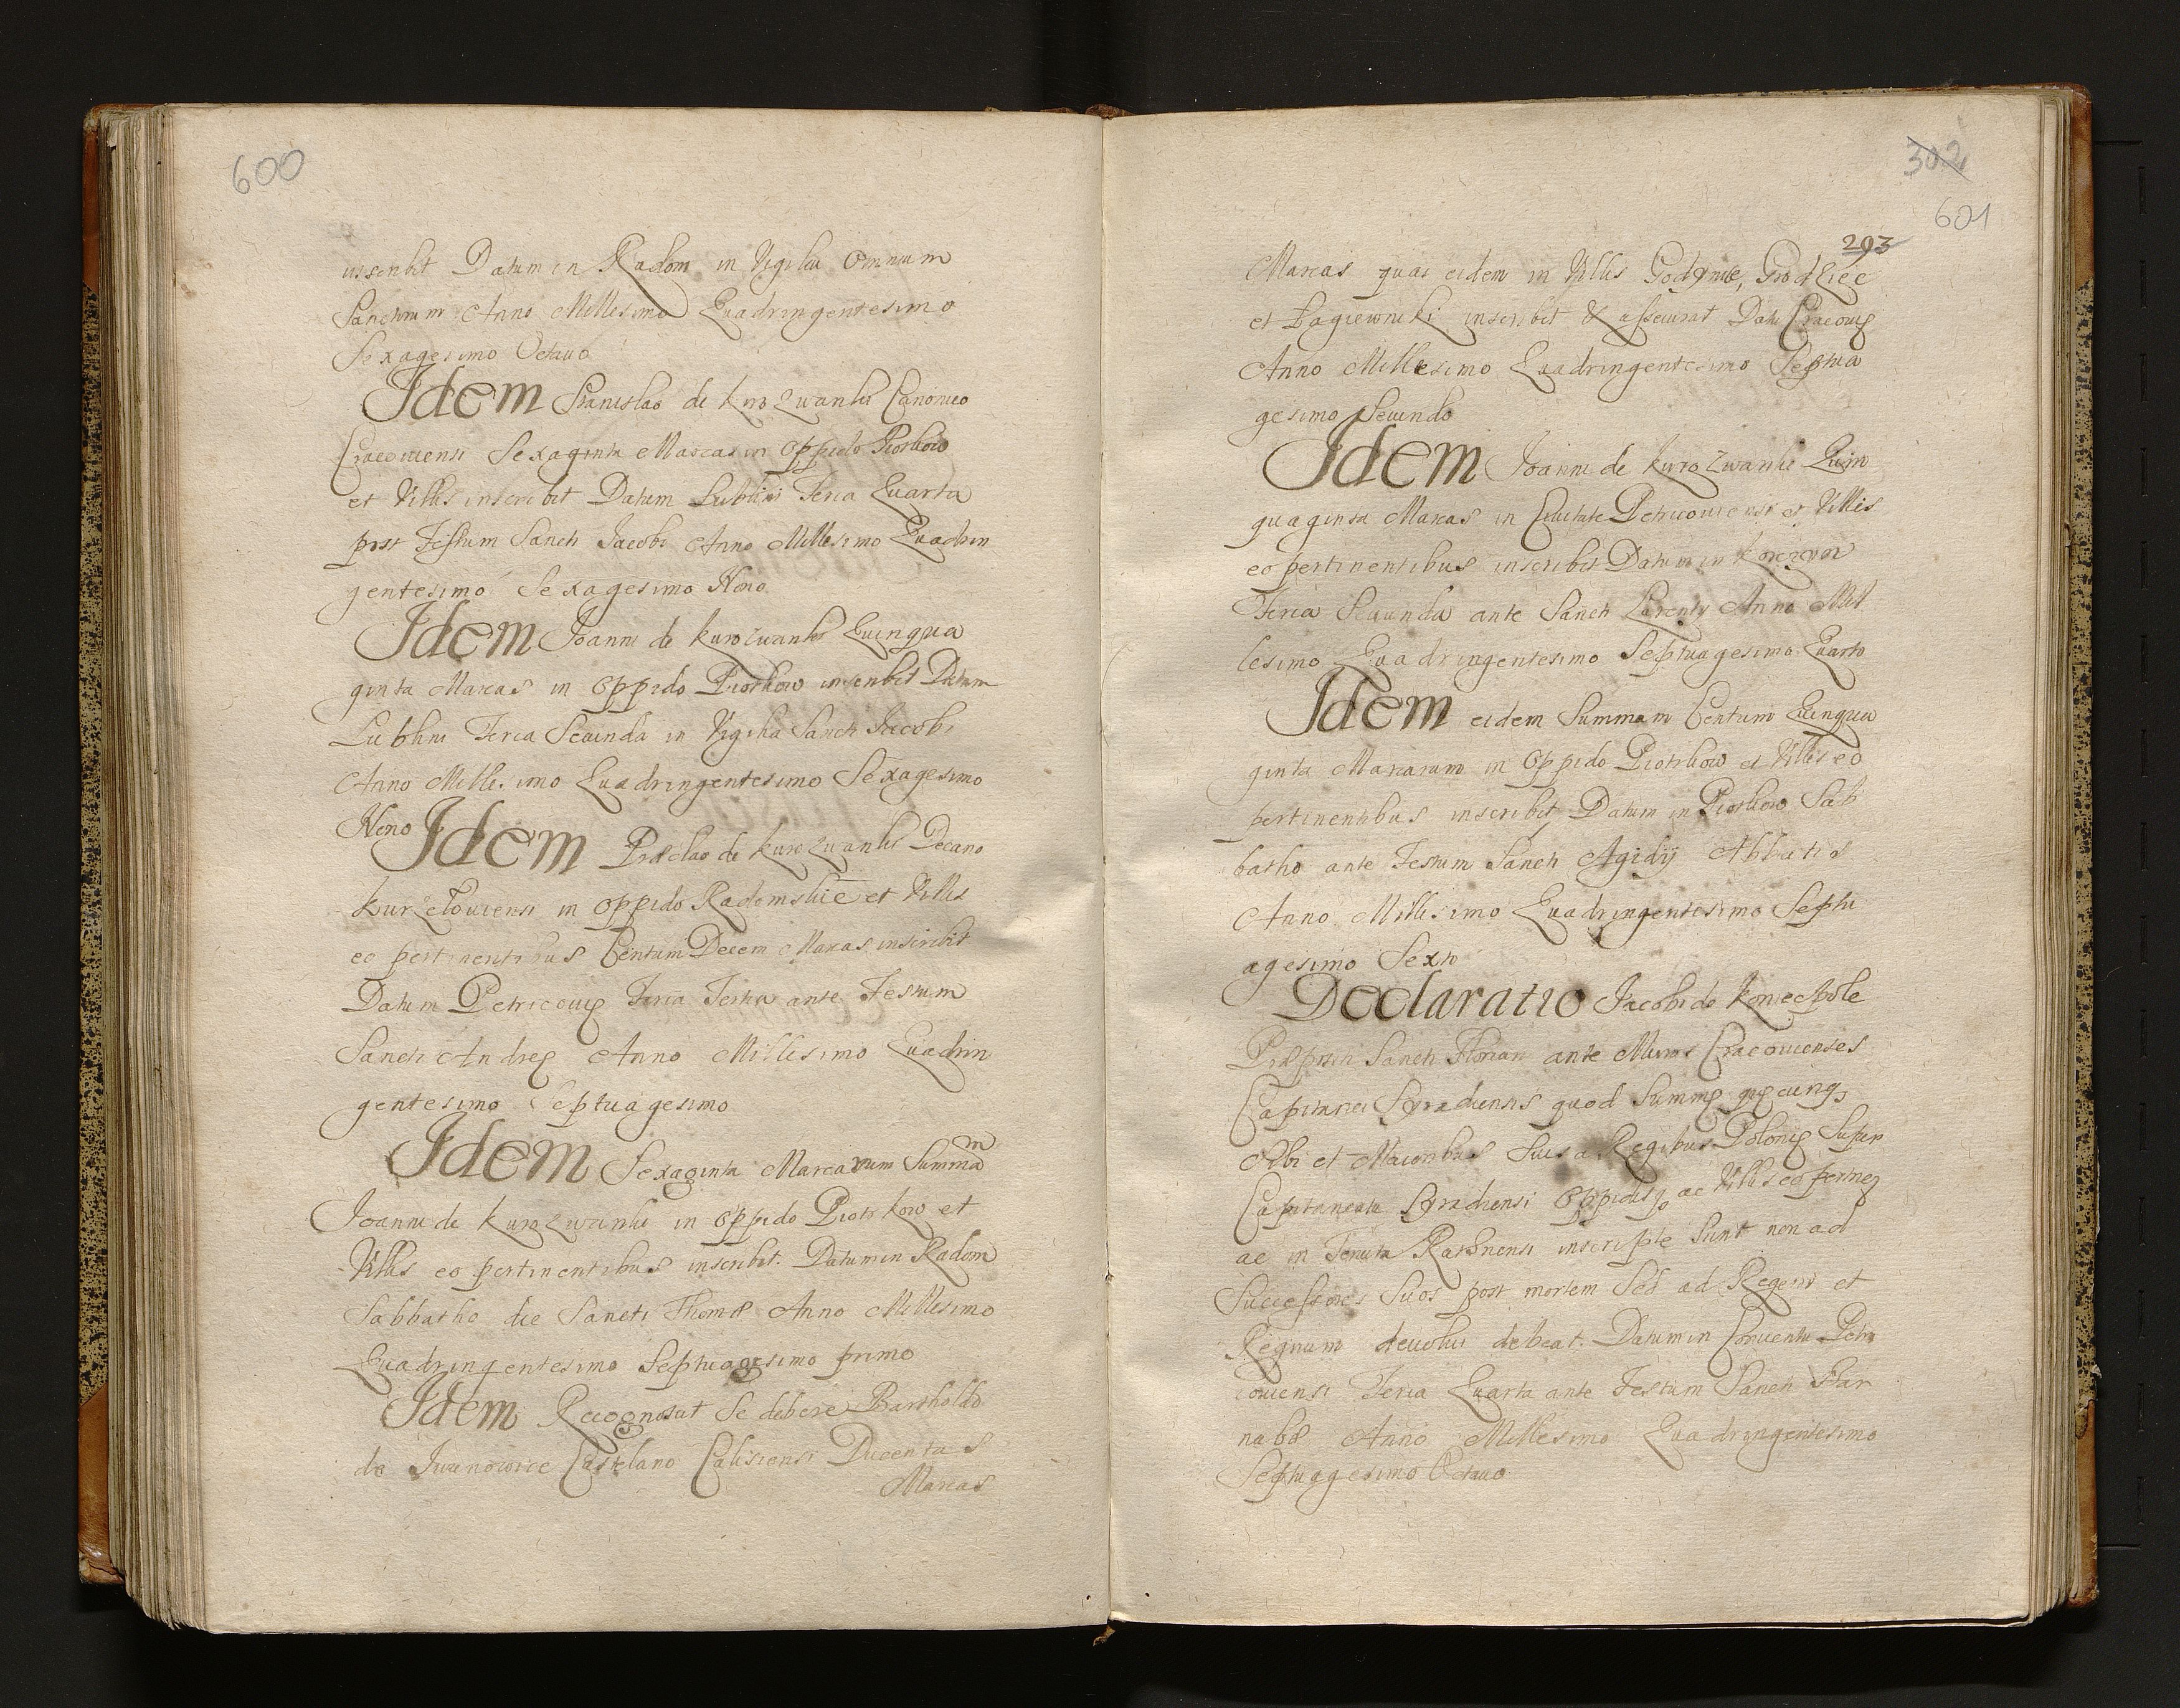 600
inscribit Datum in Radom in Vigilia Omnium
Sanctorum Anno Millesimo Quadringentesimo
Sexagesimo Octauo
Idem Stanislao de Kurozwanki Canonico
Cracouiensi Sexaginta Marcas in Oppido Piotrkow
et Villis inscribit Datum Lublini Feria Quarta
post Festum Sancti Jacobi Anno Millesimo Quadrin
gentesimo Sexagesimo Nono
Idem Joanni de Kurozwanki Quinqua
ginta Marcas in Oppido Piotrkow inscribit Datum
Lublini Feria Secunda in Vigilia Sancti Jacobi
Anno Millesimo Quadringentesimo Sexagesimo
Nono
Idem Præclao de Kurozwanki Decano
Kurzelouiensi in Oppido Radomskie et Villis
eo pertinentibus Centum Decem Marcas inscribit
Datum Petricouię Feria Tertia ante Festum
Sancti Andreę Anno Millesimo Quadrin
gentesimo Septuagesimo
Idem Sexaginta Marcarum Summam
Joanni de Kurozwanki in Oppido Piotrkow et
Villis eo pertinentibus inscribit. Datum in Radom
Sabbatho die Sancti Thomæ Anno Millesimo
Quadringentesimo Septuagesimo primo
Idem Recognoscit Se debere Bartholdo
de Iwanowice Castelano Calisiensi Ducentas
Marcas
302
601
293
Marcas quas eidem in Villis Godynice, Grodziec
et Łagiewniki inscribit & assecurat Datum Cracouię
Anno Millesimo Quadringentesimo Septua
gesimo Secundo
Idem Joanni de Kurozwanki Quin
quaginta Marcas in Ciuitate Petricouiensi et Villis
eo pertinentibus inscribit Datum in Korczyn
Feria Secunda ante Sancti Laurenty Anno Mil
lesimo Quadringentesimo Septuagesimo Quarto
Idem eidem Summam Centum Quinqua
ginta Marcarum in Oppido Piotrkow et Villis eo
pertinentibus inscribit Datum in Piotrkow Sab
batho ante Festum Sancti Agidij Abbatis
Anno Millesimo Quadringentesimo Septu
agesimo Sexto
Declaratio Jacobi de Koniecpole
Præpositi Sancti Floriani ante Muros Cracouienses
Capitanei Syradiensis quod Summę quęcunq,
sibi et Maioribus Suis a Regibus Polonię Super
Capitaneatu Syradiensi Oppidisq, ac Villis eo pertinen
ac in Tenuta inscriptę Sunt non ad
Successores Suos post mortem Sed ad Regem et
Regnum deuolui debeat. Datum in Conuentu Petri
couiensi Feria Quarta ante Festum Sancti Bar
nabæ Anno Millesimo Quadringentesimo
Septuagesimo Octauo